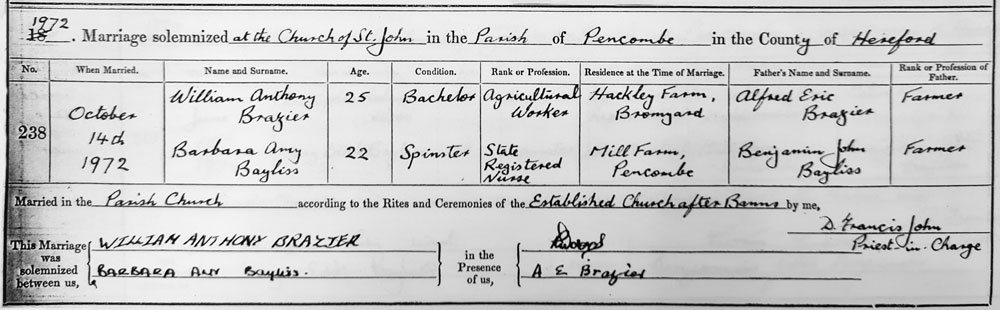 1972
18 . Marriage solemnized at the Church of St. John in the Parish of Pencombe in the County of Hereford
No. When Married. Name and Surname. Age. Condition. Rank or Profession. Residence at the Time of Marriage. Father's Name and Surname. Rank or Profession of Father.
238
October
14th
1972
William Anthony
Brazier
25
Bachelor
Agricultural
Worker
Hackley Farm,
Bromyard
Alfred Eric
Brazier
Farmer
Barbara Amy
Bayliss
22
Spinster
State
Registered
Nurse
Mill Farm,
Pencombe
Benjamin John
Bayliss
Farmer
Married in the Parish Church according to the Rites and Ceremonies of the Established Church after Banns by me,
D. Francis John
Priest-in-Charge
This Marriage
was
solemnized
between us,
WILLIAM ANTHONY BRAZIER
BARBARA ANN Bayliss.
in the
Presence
of us,
A E Brazier